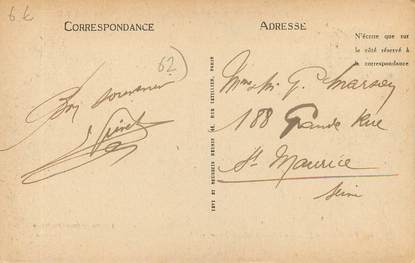 6 €
CORRESPONDANCE
ADRESSE
N'écrire que sur
le côté réservé à
la correspondance
62
Bon souvenir
Mme G. Marsay
188 Grande Rue
St Maurice
Seine